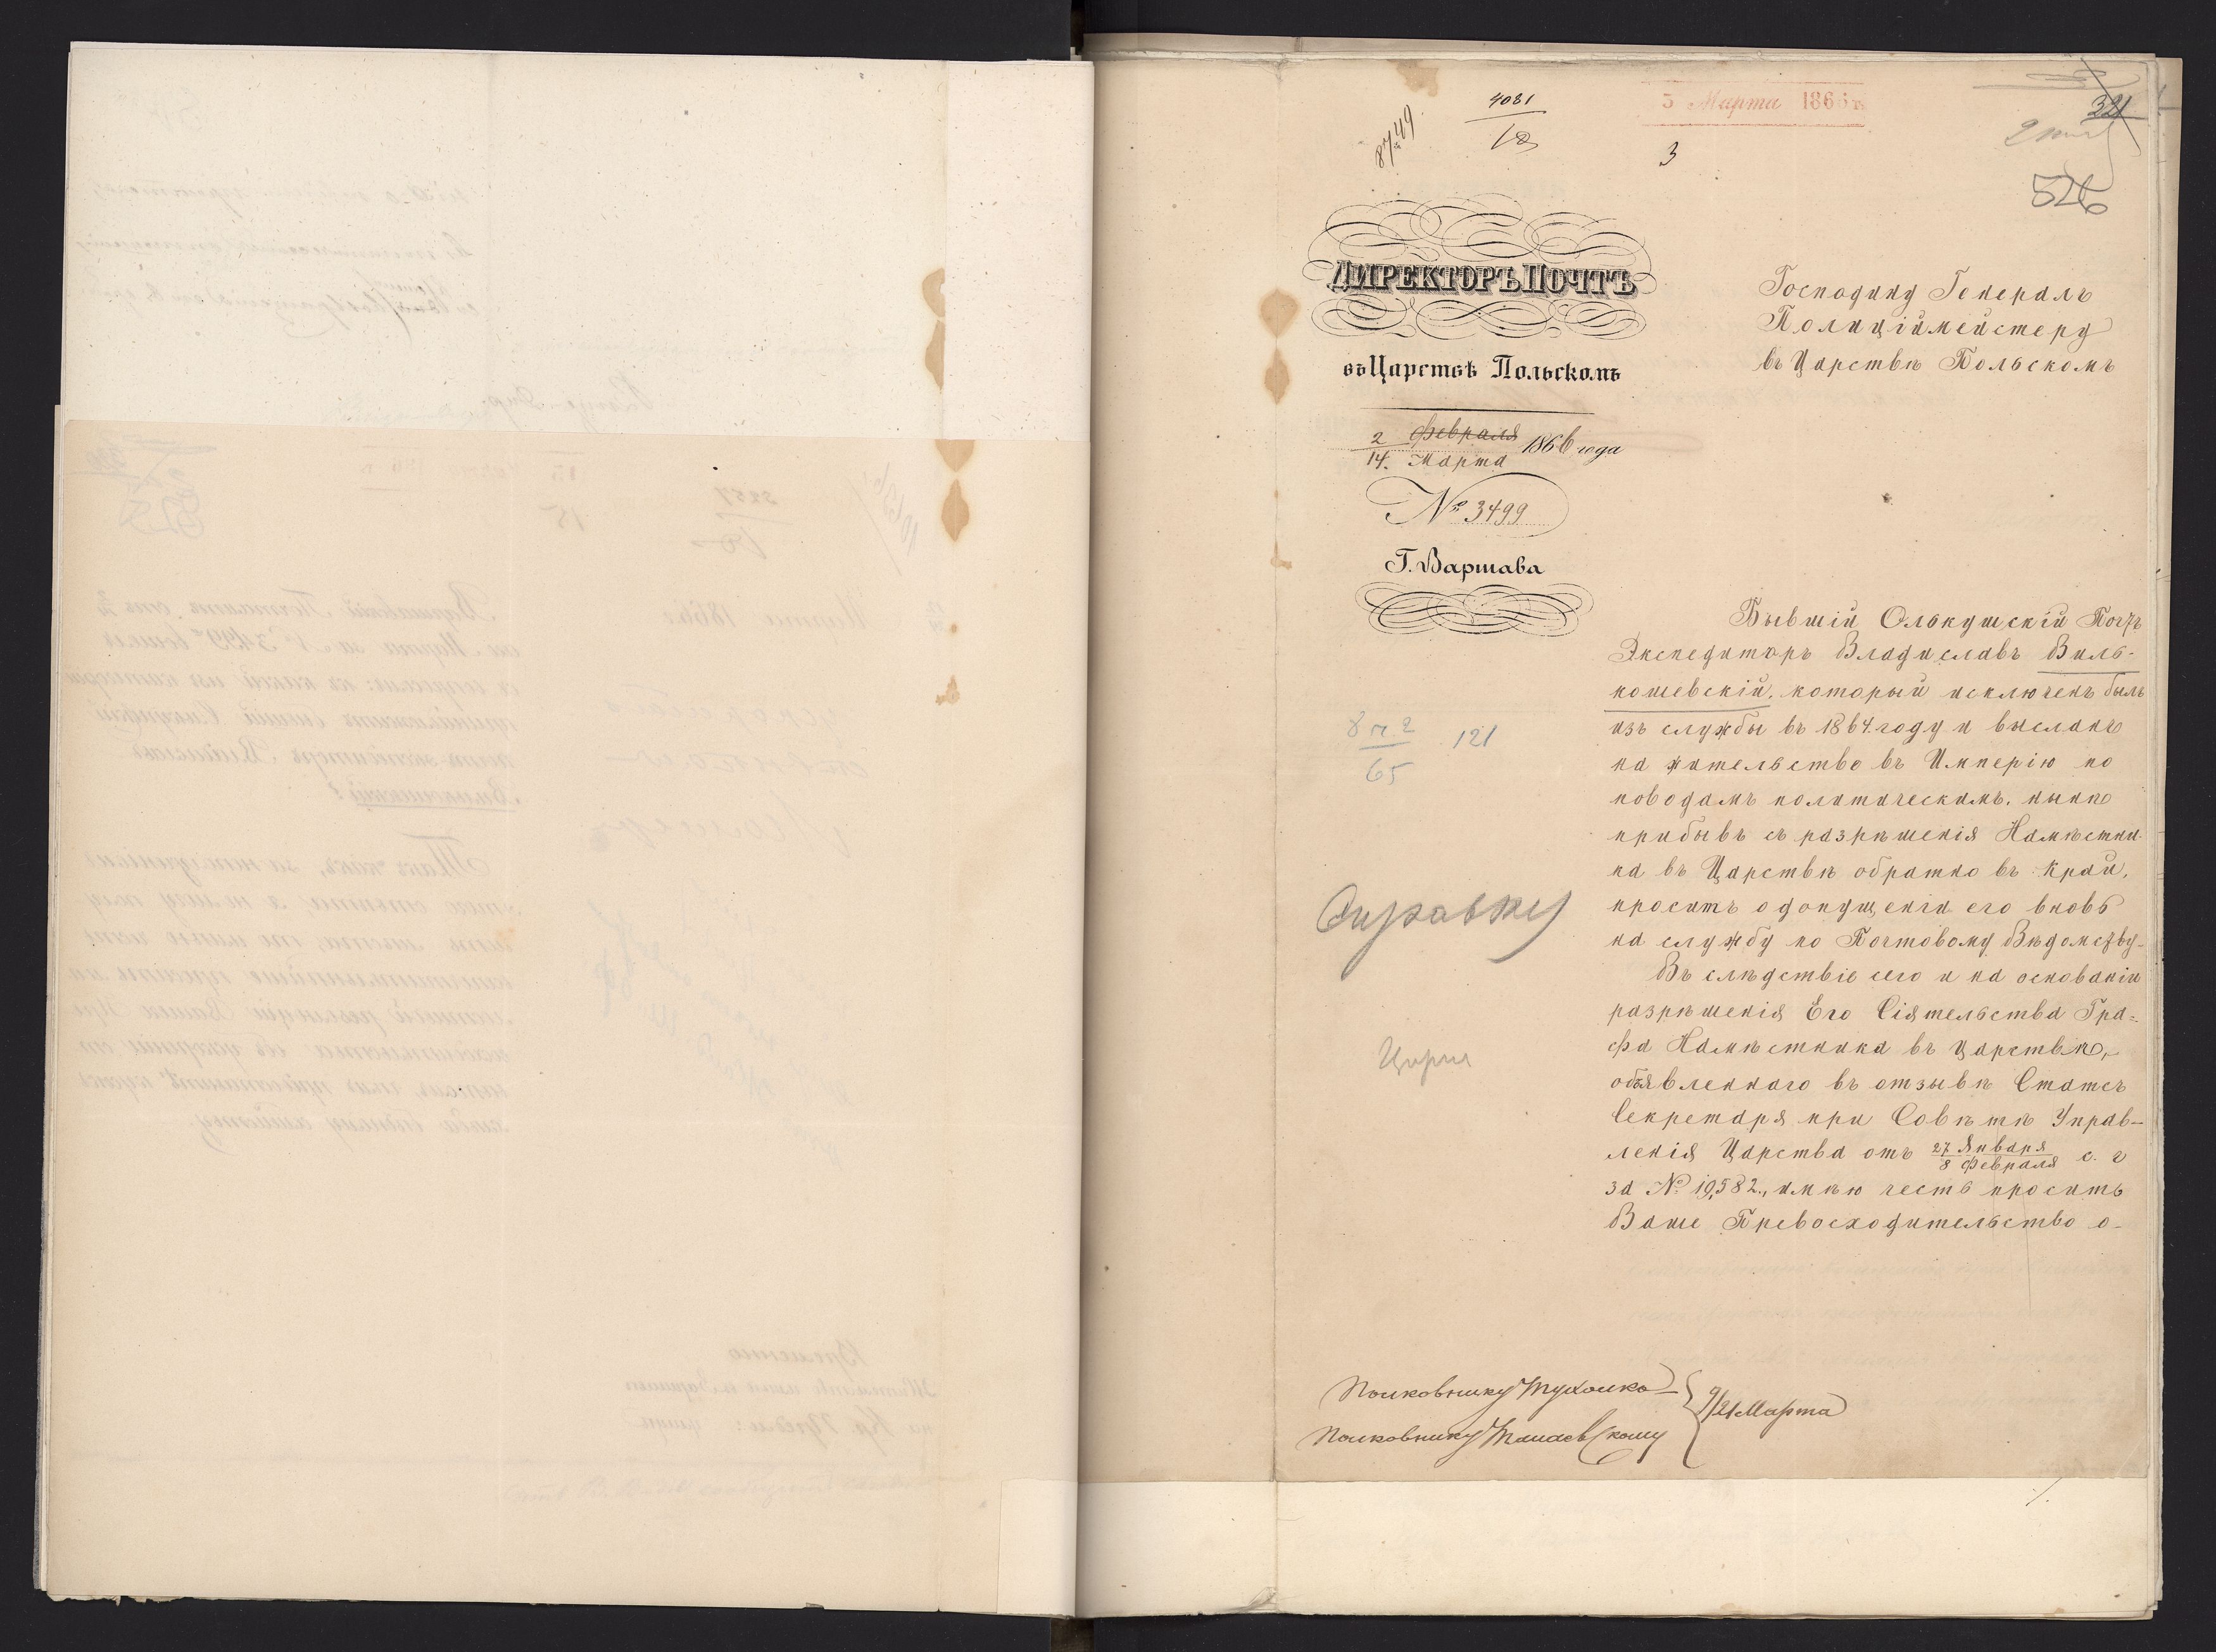 4081
18
8749
5 Марта 1866 г.
3
321
526
ДИРЕКТОРЪ ПОЧТЪ
въ Царствѣ Польскомъ
2 Февраля
14. Марта 1866 года
№ 3499
Г. Варшава
Господину Генералъ
Полиціймейстеру
въ Царствѣ Польскомъ
Бывшій Олькушскій Почтъ
Экспедиторъ Владиславъ Виль-
кошевскій, который исключенъ былъ
изъ службы въ 1864 году и высланъ
на жительство въ Имперію по
поводамъ политическимъ, нынѣ
прибывъ съ разрѣшенія Намѣстни-
ка въ Царствѣ обратно въ Край,
проситъ о допущеніи его вновь
на службу по Почтовому Вѣдомству.
Въ слѣдствіе сего и на основаніи
разрѣшенія Его Сіятельства Гра-
фа Намѣстника въ Царствѣ,
объявленнаго въ отзывѣ Статсъ
Секретаря при Совѣтѣ Управ-
ленія Царства отъ 27 Января / 8 Февраля с. г
за № 19,582., имѣю честь просить
Ваше Превосходительство о
121
65
Справку
Полковнику Тухолко
Полковнику
9/21 Марта